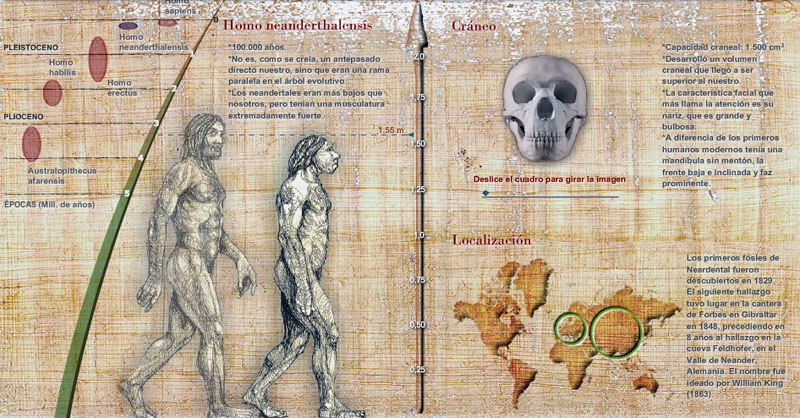 Homo
sapiens
0
Homo
neanderthalensis
PLEISTOCENO
1
Homo
habilis
Homo
erectus
2
PLIOCENO
3
4
Australopithecus
afarensis
5
ÉPOCAS (Mill. de años)
Homo neanderthalensis
*100.000 años.
*No es, como se creía, un antepasado
directo nuestro, sino que eran una rama
paralela en el árbol evolutivo.
*Los neandertales eran más bajos que
nosotros, pero tenían una musculatura
extremadamente fuerte.
1.55 m
2.0
1.75
1.50
1.25
1.0
0.75
0.50
0.25
Cráneo
Deslice el cuadro para girar la imagen
*Capacidad craneal: 1.500 cm³
*Desarrolló un volumen
craneal que llegó a ser
superior al nuestro.
*La característica facial que
más llama la atención es su
nariz, que es grande y
bulbosa.
*A diferencia de los primeros
humanos modernos tenía una
mandíbula sin mentón, la
frente baja e inclinada y faz
prominente.
Localización
Los primeros fósiles de
Neardental fueron
descubiertos en 1829.
El siguiente hallazgo
tuvo lugar en la cantera
de Forbes en Gibraltar
en 1848, precediendo en
8 años al hallazgo en la
cueva Feldhofer, en el
Valle de Neander,
Alemania. El nombre fue
ideado por William King
(1863).